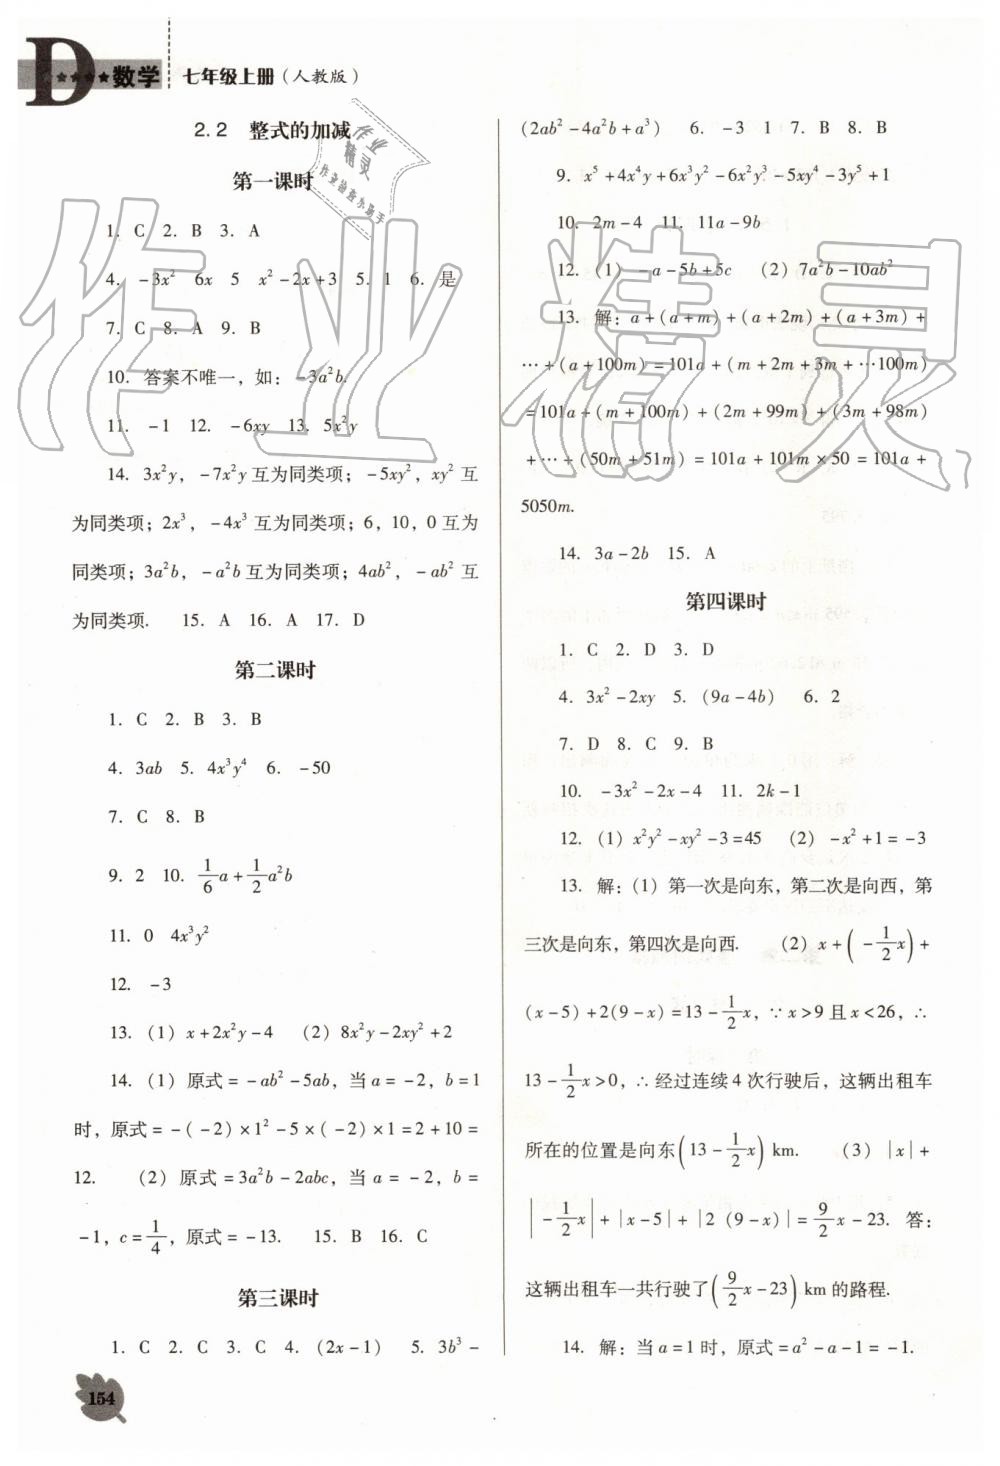 D ★★★★ 数学 七年级上册(人教版)
2.2 整式的加减
第一课时
1. C 2. B 3. A
4. -3x² 6x 5 x²-2x+3 5. 1 6. 是
7. C 8. A 9. B
10. 答案不唯一,如:-3a²b.
11. -1 12. -6xy 13. 5x²y
14. 3x²y,-7x²y 互为同类项;-5xy²,xy² 互
为同类项;2x³,-4x³ 互为同类项;6,10,0 互为
同类项;3a²b,-a²b 互为同类项;4ab²,-ab² 互
为同类项. 15. A 16. A 17. D
第二课时
1. C 2. B 3. B
4. 3ab 5. 4x³y⁴ 6. -50
7. C 8. B
9. 2 10. 1/6 a+1/2 a²b
11. 0 4x³y²
12. -3
13. (1) x+2x²y-4 (2) 8x²y-2xy²+2
14. (1) 原式=-ab²-5ab,当 a=-2,b=1
时,原式=-(-2)×1²-5×(-2)×1=2+10=
12. (2) 原式=3a²b-2abc,当 a=-2,b=
-1,c=1/4,原式=-13. 15. B 16. C
第三课时
1. C 2. C 3. C 4. (2x-1) 5. 3b³-
(2ab²-4a²b+a³) 6. -3 1 7. B 8. B
9. x⁵+4x⁴y+6x³y²-6x²y³-5xy⁴-3y⁵+1
10. 2m-4 11. 11a-9b
12. (1) -a-5b+5c (2) 7a²b-10ab²
13. 解:a+(a+m)+(a+2m)+(a+3m)+
…+(a+100m)=101a+(m+2m+3m+…100m)
=101a+(m+100m)+(2m+99m)+(3m+98m)
+…+(50m+51m)=101a+101m×50=101a+
5050m.
14. 3a-2b 15. A
第四课时
1. C 2. D 3. D
4. 3x²-2xy 5. (9a-4b) 6. 2
7. D 8. C 9. B
10. -3x²-2x-4 11. 2k-1
12. (1) x²y²-xy²-3=45 (2) -x²+1=-3
13. 解:(1) 第一次是向东,第二次是向西,第
三次是向东,第四次是向西. (2) x+(-1/2 x)+
(x-5)+2(9-x)=13-1/2 x,∵x>9 且 x<26,∴
13-1/2 x>0,∴经过连续 4 次行驶后,这辆出租车
所在的位置是向东(13-1/2 x) km. (3) |x|+
|-1/2 x|+|x-5|+|2(9-x)|=9/2 x-23. 答:
这辆出租车一共行驶了(9/2 x-23) km 的路程.
14. 解:当 a=1 时,原式=a²-a-1=-1.
154
作业精灵
作业
精灵